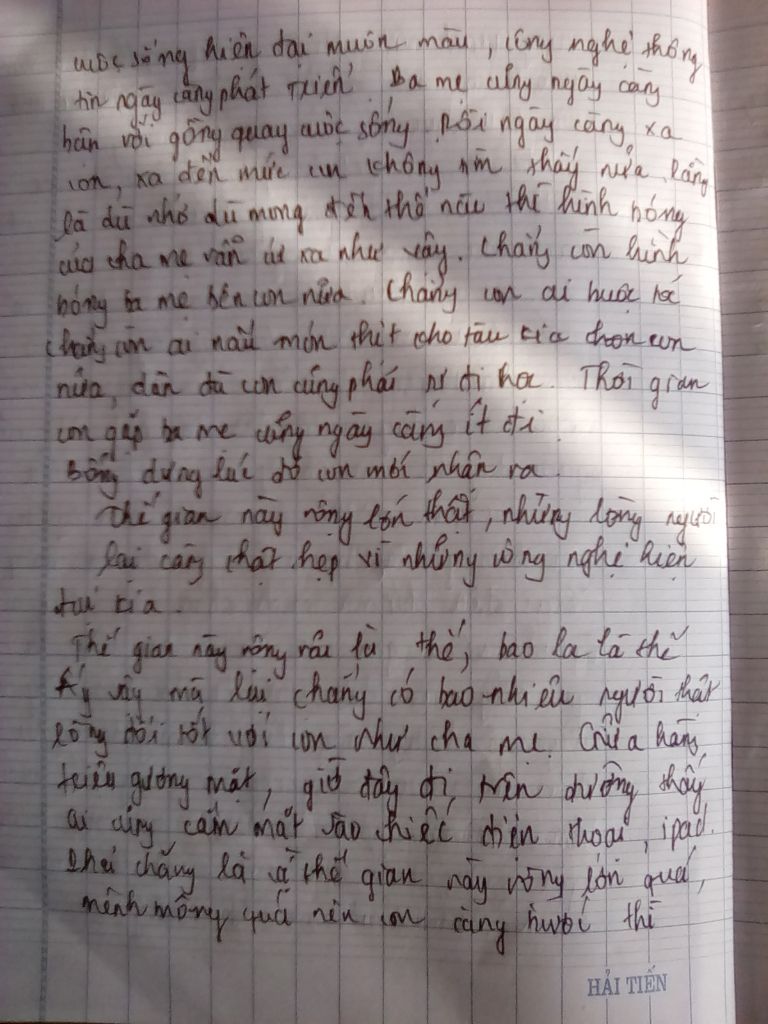 cuộc sống hiện đại muôn màu, công nghệ thông
tin ngày càng phát triển. Ba mẹ cũng ngày càng
bận với gồng quay cuộc sống. Rồi ngày càng xa
con, xa đến mức con không nhìn thấy nữa.
là dù nhớ dù mong đến thế nào thì hình bóng
của cha mẹ vẫn cứ xa như vậy. Chẳng còn hình
bóng ba mẹ bên con nữa. Chẳng còn ai buộc tóc
chẳng còn ai nấu món thịt kho tàu kia cho con
nữa, dần dà con cũng phải tự đi học. Thời gian
con gặp ba mẹ cũng ngày càng ít đi.
Bỗng dưng lúc đó con mới nhận ra.
Thế gian này rộng lớn thật, nhưng lòng người
lại càng chật hẹp vì những công nghệ hiện
đại kia.
Thế gian này rộng rãi là thế, bao la là thế
Ấy vậy mà lại chẳng có bao nhiêu người thật
lòng đối tốt với con như cha mẹ. Giữa hàng
triệu gương mặt, giờ đây đi trên đường thấy
ai cũng cắm mặt vào chiếc điện thoại, ipad.
Phải chăng là vì thế gian này rộng lớn quá,
mênh mông quá nên con càng bước thì
HẢI TIẾN